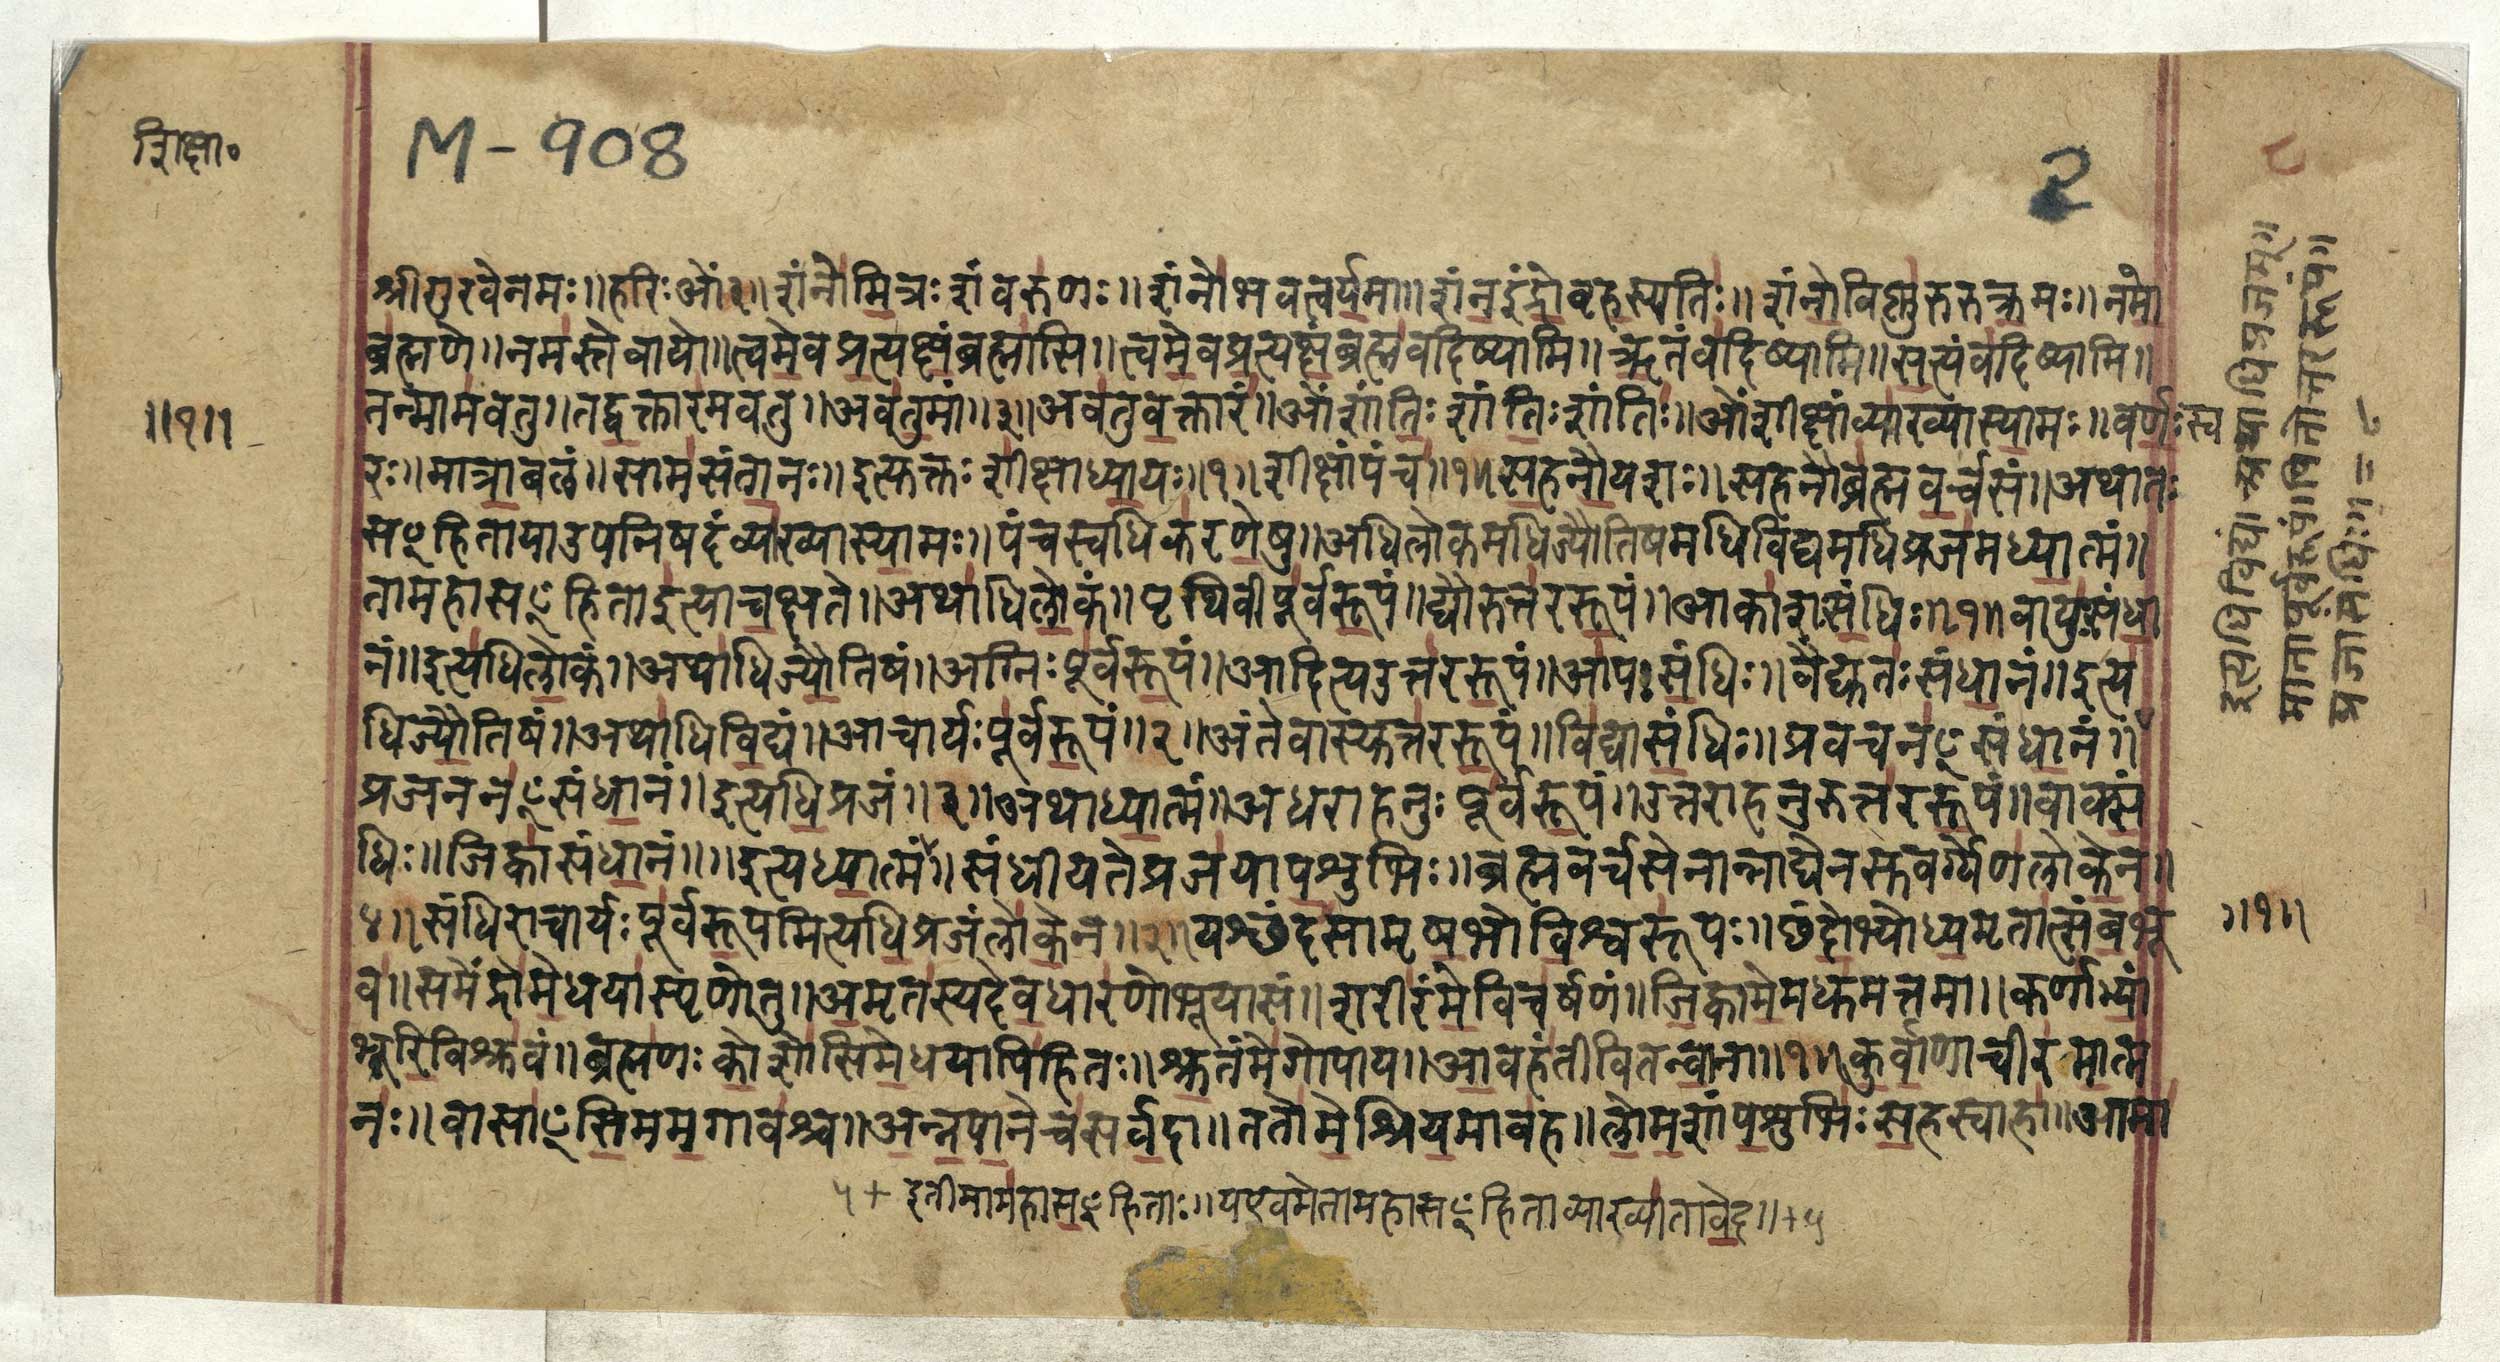 शिक्षा०
M-908
2
८
श्रीगुरवेनमः॥हरिःओं३॥शंनोमित्रःशंवरुणः॥शंनोभवत्वर्यमा॥शंनइंद्रोबृहस्पतिः॥शंनोविष्णुरुरुक्रमः॥नमो
ब्रह्मणे॥नमस्तेवायो॥त्वमेवप्रत्यक्षंब्रह्मासि॥त्वमेवप्रत्यक्षंब्रह्मवदिष्यामि॥ऋतंवदिष्यामि॥सत्यंवदिष्यामि॥
॥१॥
तन्मामवतु॥तद्वक्तारमवतु॥अवतुमां॥३॥अवतुवक्तारं॥ओंशांतिःशांतिःशांतिः॥ओंशीक्षांव्याख्यास्यामः॥वर्णःस्व
रः॥मात्राबलं॥सामसंतानः॥इत्युक्तःशीक्षाध्यायः॥१॥शीक्षांपंच॥१॥सहनौयशः॥सहनौब्रह्मवर्चसं॥अथातः
सꣳहितायाउपनिषदंव्याख्यास्यामः॥पंचस्वधिकरणेषु॥अधिलोकमधिज्यौतिषमधिविद्यमधिप्रजमध्यात्मं॥
तामहासꣳहिताइत्याचक्षते॥अथाधिलोकं॥पृथिवीपूर्वरूपं॥द्यौरुत्तररूपं॥आकाशःसंधिः॥१॥वायुःसंधा
नं॥इत्यधिलोकं॥अथाधिज्यौतिषं॥अग्निःपूर्वरूपं॥आदित्यउत्तररूपं॥आपःसंधिः॥वैद्युतःसंधानं॥इत्य
धिज्यौतिषं॥अथाधिविद्यं॥आचार्यःपूर्वरूपं॥२॥अंतेवास्युत्तररूपं॥विद्यासंधिः॥प्रवचनꣳसंधानं॥
इत्यधिविद्यं॥अथाधिप्रजम्॥
मातापूर्वरूपं॥पितोत्तररूपं॥
प्रजासंधिः॥=८
प्रजननꣳसंधानं॥इत्यधिप्रजं॥३॥अथाध्यात्मं॥अधराहनुःपूर्वरूपं॥उत्तराहनुरुत्तररूपं॥वाक्सं
धिः॥जिह्वासंधानं॥॥इत्यध्यात्मं॥संधीयतेप्रजयापशुभिः॥ब्रह्मवर्चसेनान्नाद्येनसुवर्ग्येणलोकेन॥
४॥संधिराचार्यःपूर्वरूपमित्यधिप्रजंलोकेन॥२॥यश्छंदसामृषभोविश्वरूपः॥छंदोभ्योध्यमृतात्संबभू
॥१॥
व॥समेंद्रोमेधयास्पृणोतु॥अमृतस्यदेवधारणोभूयासं॥शरीरंमेविचर्षणं॥जिह्वामेमधुमत्तमा॥कर्णाभ्यां
भूरिविश्रुवं॥ब्रह्मणःकोशोसिमेधयापिहितः॥श्रुतंमेगोपाय॥आवहंतीवितन्वाना॥१॥कुर्वाणाचीरमात्म
नः॥वासाꣳसिममगावश्च॥अन्नपानेचसर्वदा॥ततोमेश्रियमावह॥लोमशांपशुभिःसहस्वाहा॥आमा
५+ इतीमामहासꣳहिताः॥यएवमेतामहासꣳहिताव्याख्यातावेद॥+५